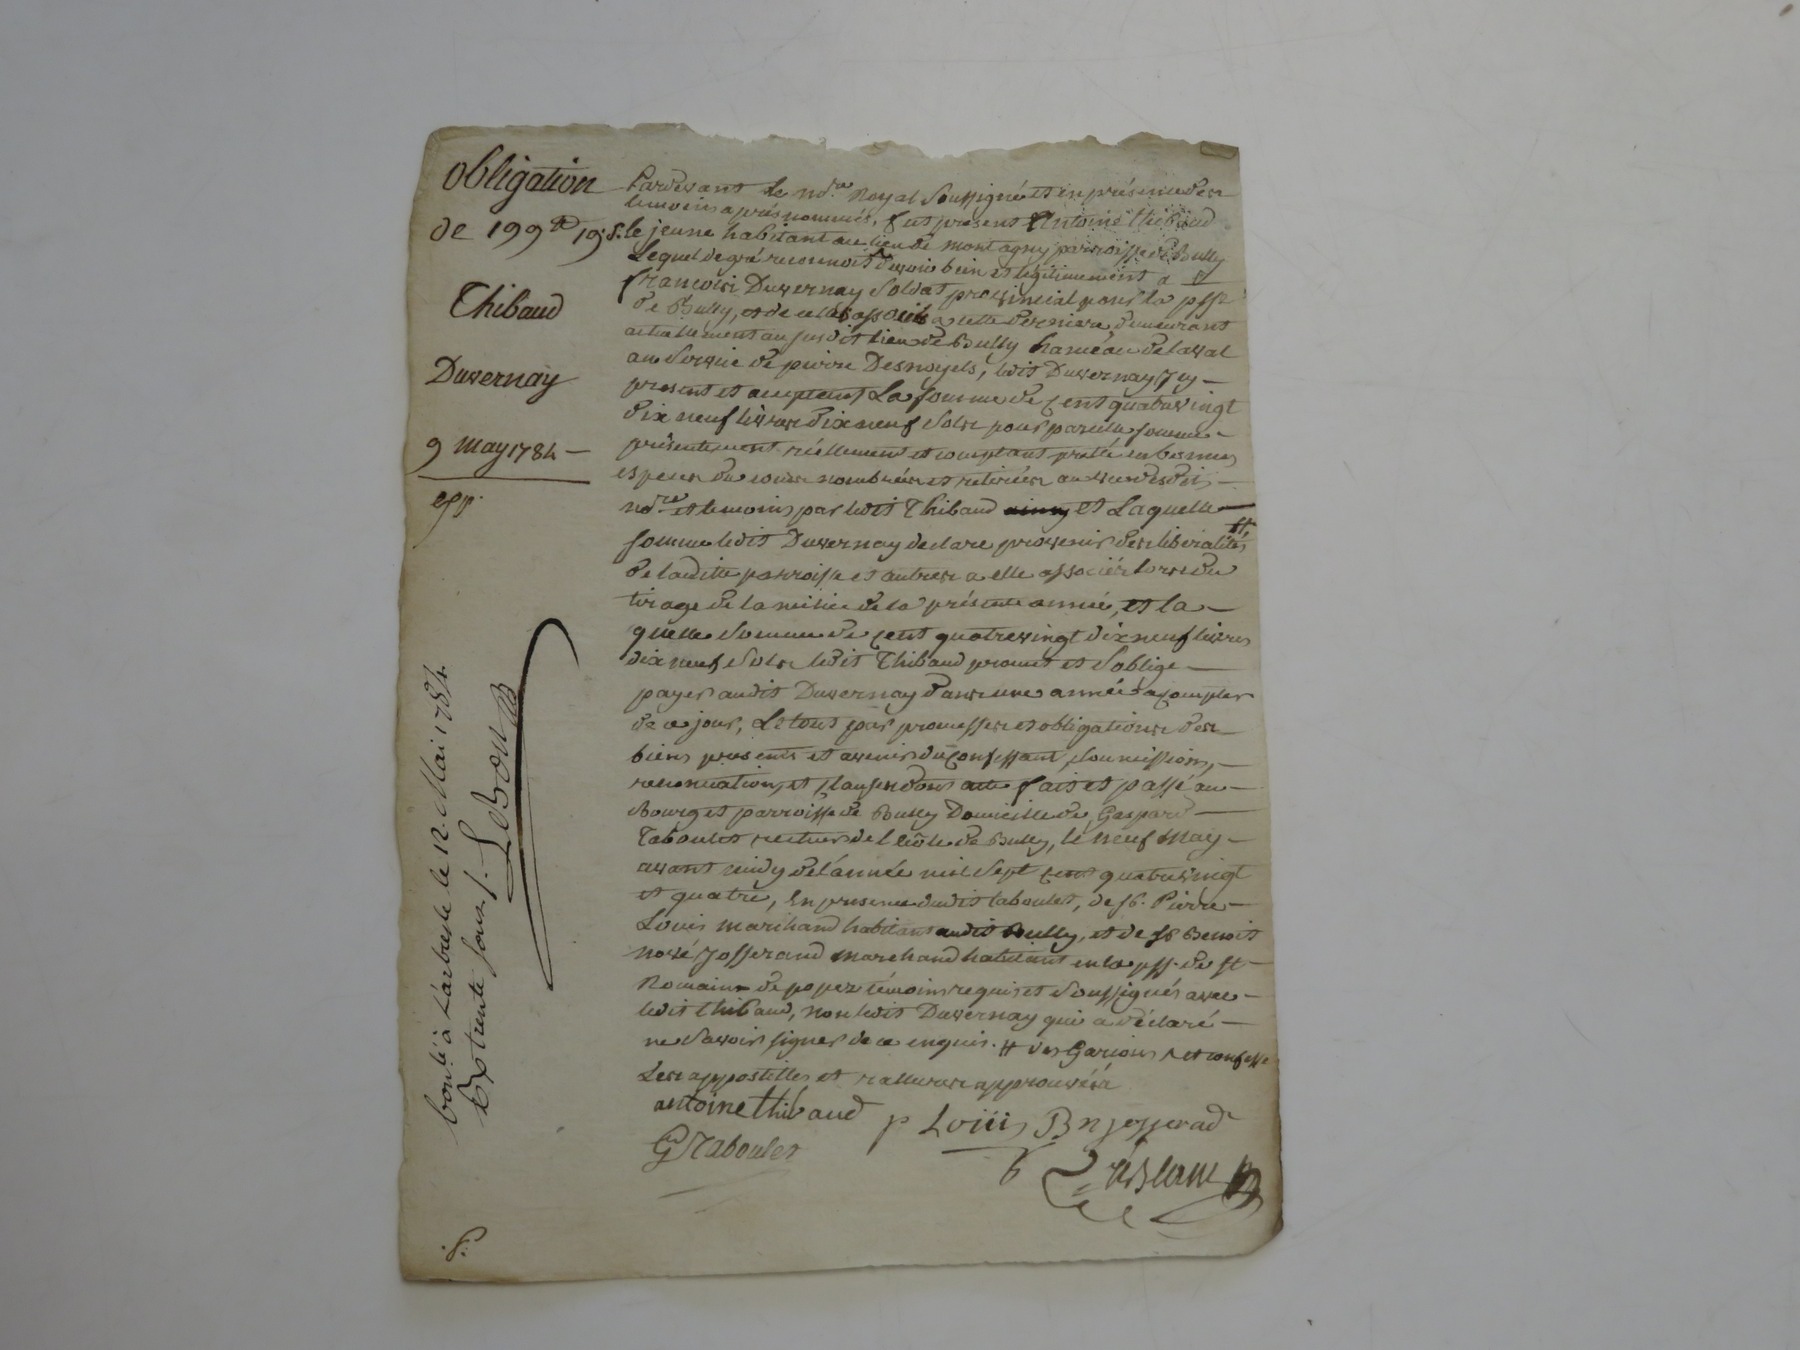 obligation
de 199# 19s.
Thibaud
Duvernay
9 may 1784
exp.
Pardevant le nore Royal Soussigné et en présence des
temoins après nommés, fut présent Antoine thibaud
le jeune habitant au lieu de montagny parroisse de Bully
Lequel de gré reconnoit devoir bien et légitimement à
francois Duvernay Soldat provincial pour la psse
de Bully, et de celles associés a cette derniere demeurant
actuellement au susdit lieu de Bully hameau de laval
au Service de pierre Desnoyels, ledit Duvernay Icy
present et acceptant La somme de cent quatrevingt
dix neuf livres dix neuf Sols pour pareille somme
présentement réellement et comptant prêtée en bonnes
especes de cours nombrées et retirées au vu desdits
nore et temoins par ledit Thibaud et Laquelle
somme ledit Duvernay declare provenir des liberalités #
de ladite parroisse et autres a elle associées lors du
tirage de la milice de la présente année, et la
quelle Somme de cent quatrevingt dix neuf livres
dix neuf Sols ledit Thibaud promet et S'oblige
payer audit Duvernay dans une année a compter
de ce jour, Le tout par promesses et obligations des
biens presents et avenir du confessant, Soumissions,
renonciations, et clauses dont acte fait et passé au
Bourg et parroisse de Bully Domicille de Gaspard
Taboulet recteur de l'école de Bully, le neuf May
avant midy de l'année mil Sept cent quatrevingt
et quatre, En presence dudit taboulet, de sr. Pierre
Louis marchand habitant audit Bully, et de sr Benoit
Noé Josserand marchand habitant en la pss. de st
Romain de popez témoins requis et Soussignés avec
ledit thibaud, non ledit Duvernay qui a déclaré
ne Savoir signer de ce enquis. # des Garcons et confesse
Les appostilles et ratures approuvées
antoine thibaud p Louis Bn josserad
G Taboulet
contlé à L'arbresle le 12. Mai 1784
Rx trente sous /. LeBon